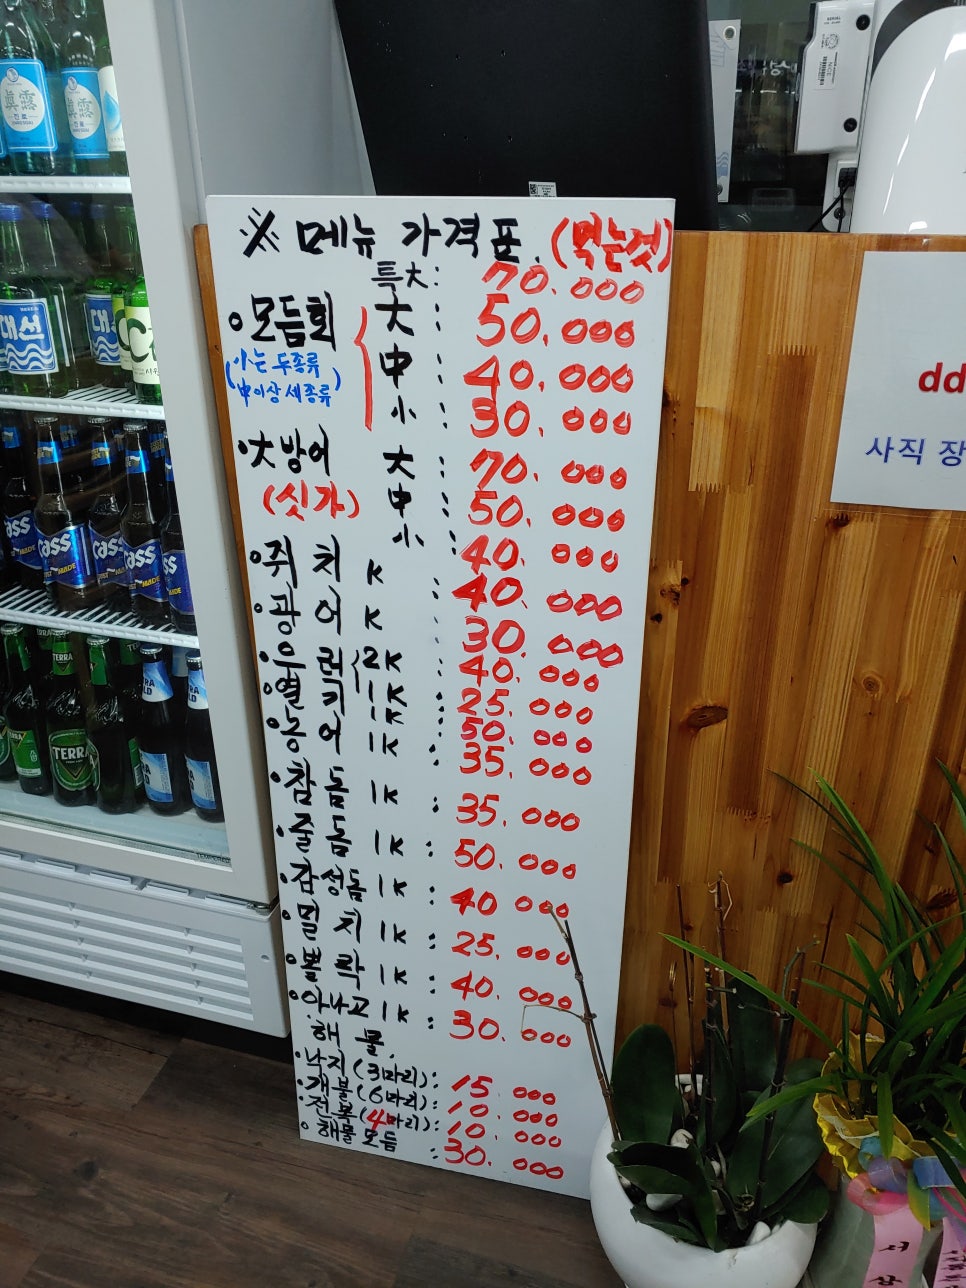 ※ 메뉴 가격표. (먹는것)
특大: 70.000
• 모듬회 大: 50.000
(小는 두종류 中: 40.000
中이상 세종류) 小: 30.000
• 大방어 大: 70.000
(싯가) 中: 50.000
小: 40.000
• 쥐치 K : 40.000
• 광어 K : 30.000
• 우럭 2K : 40.000
1K : 25.000
• 열기 1K : 50.000
• 농어 1K : 35.000
• 참돔 1K : 35.000
• 줄돔 1K : 50.000
• 감성돔 1K : 40 000
• 밀치 1K : 25.000
• 뽈락 1K : 40.000
• 아나고 1K : 30.000
해물.
• 낙지 (3마리): 15 000
• 개불 (6마리): 10.000
• 전복 (4마리): 10.000
• 해물모듬 : 30.000
眞露
진로
대선
대선
cass
cass
cass
TERRA
TERRA
dd
사직 장
서